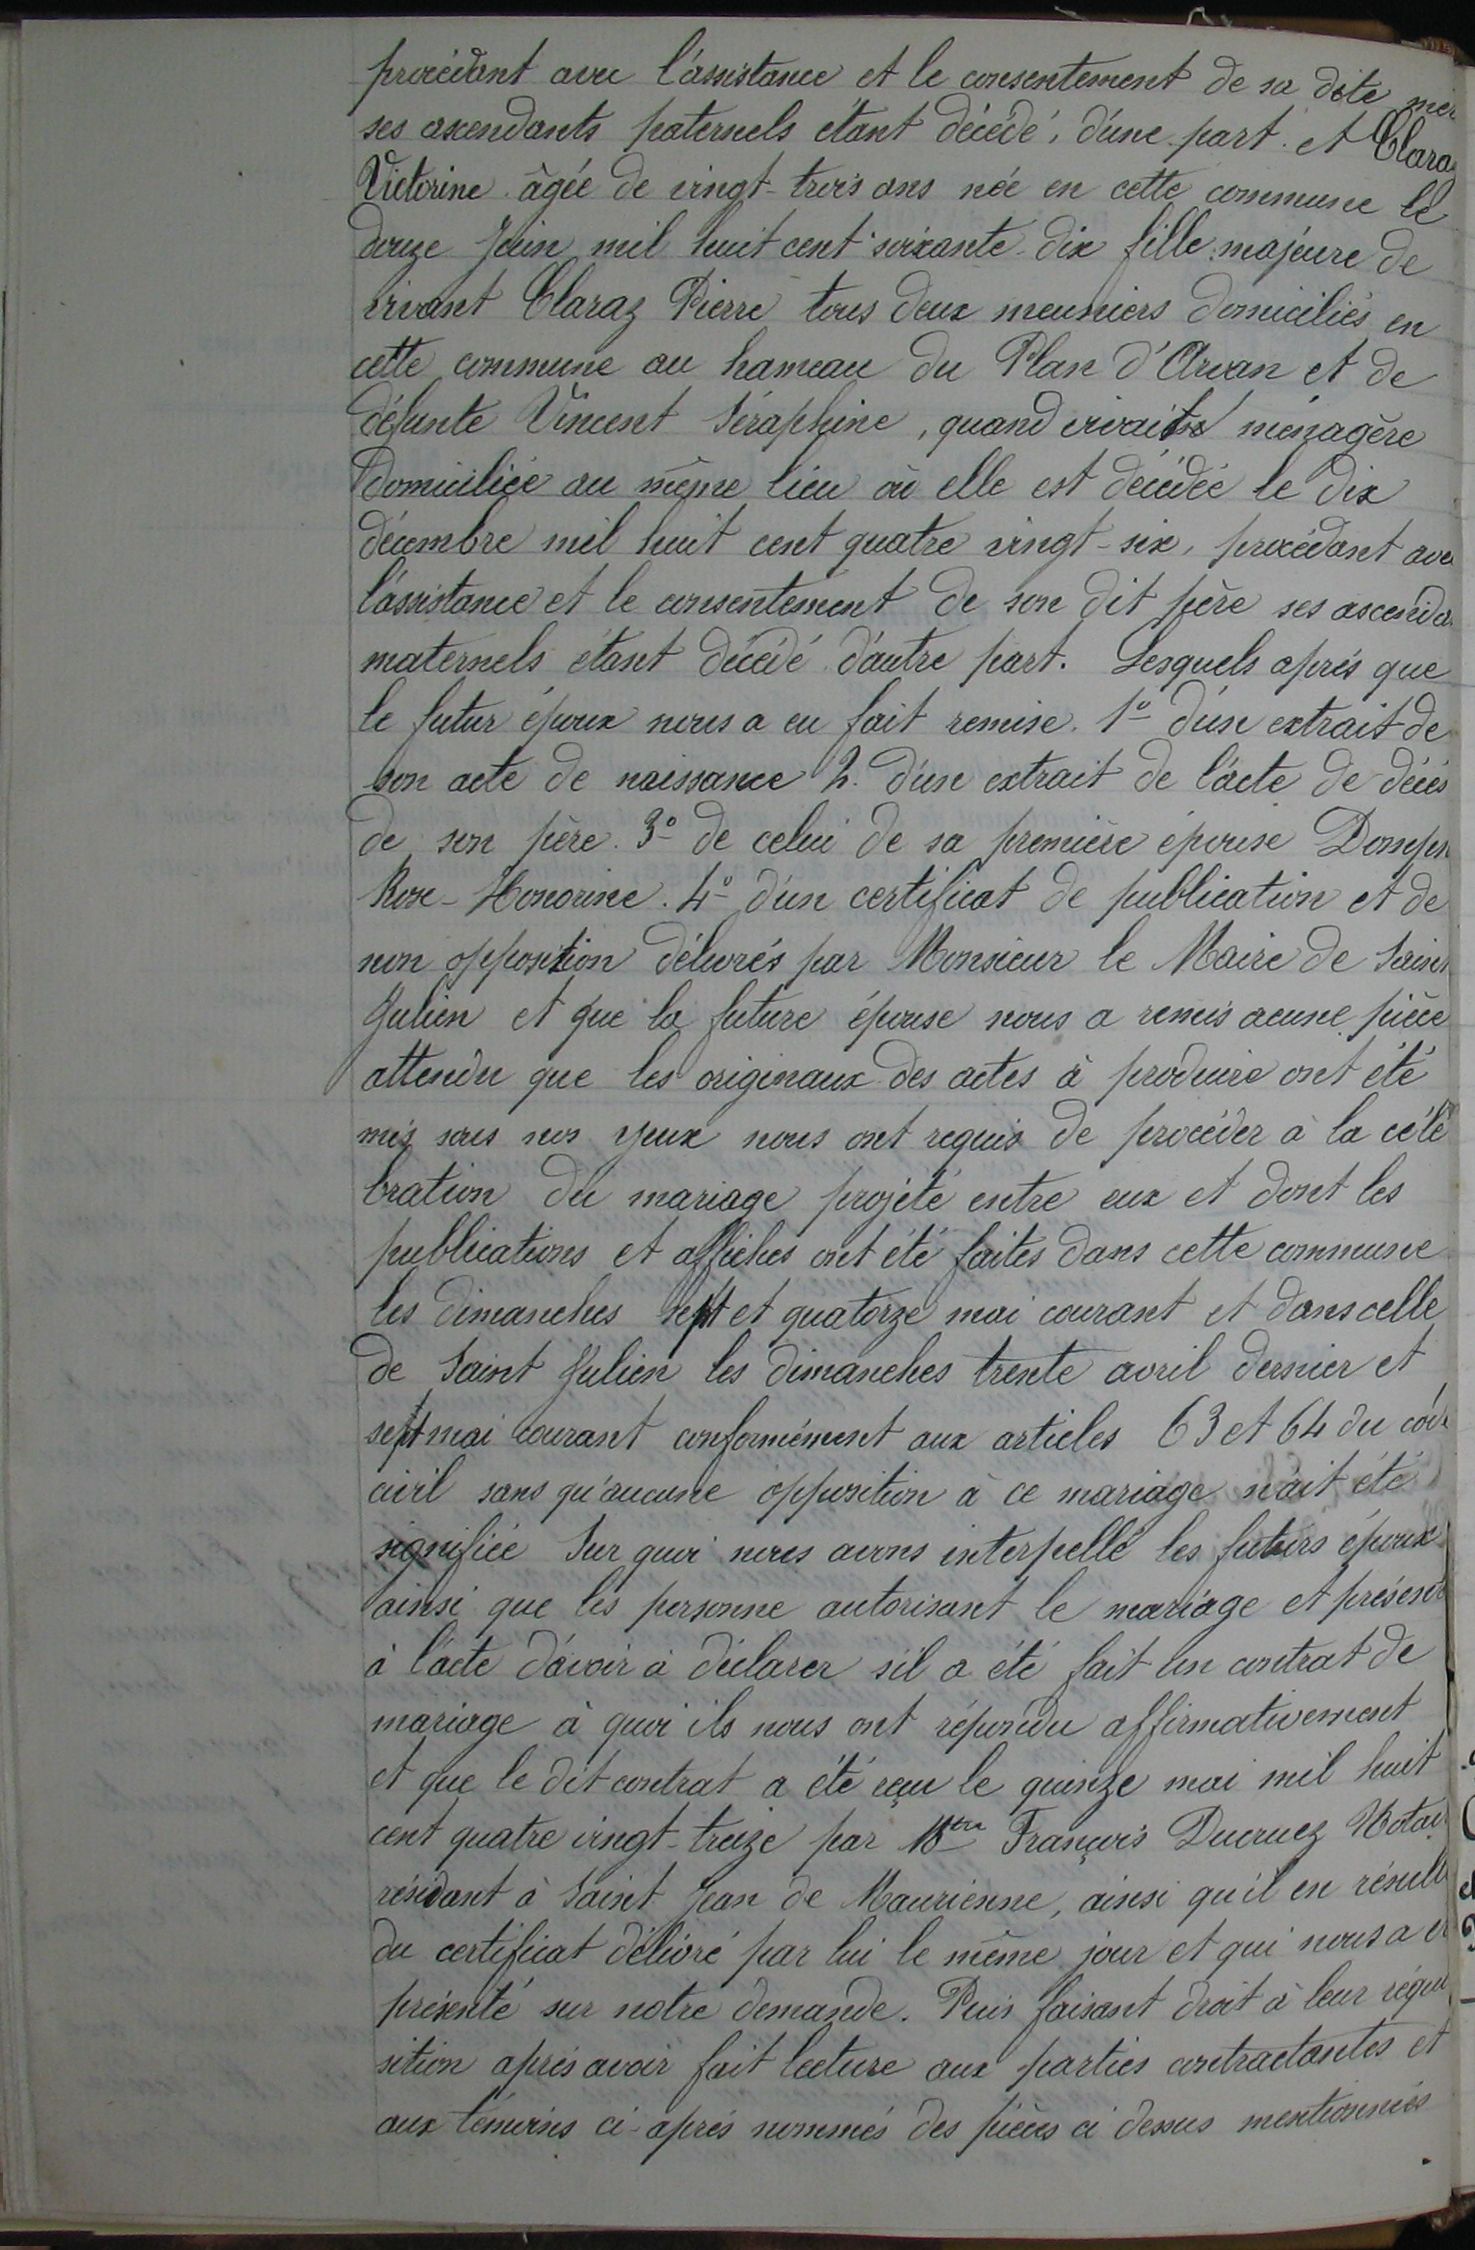 procédant avec l'assistance et le consentement de sa dite mèr
ses ascendants paternels étant décédé, d'une part. et Claraz
Victorine âgée de vingt-trois ans née en cette commune le
douze Juin mil huit cent soixante-dix fille majeure de
vivant Claraz Pierre tous deux meuniers domiciliés en
cette commune au hameau du Plan d'Arvan et de
défunte Vincent Séraphine, quand vivait ménagère
domiciliée au même lieu où elle est décédée le dix
décembre mil huit cent quatre vingt-six, procédant avec
l'assistance et le consentement de son dit père ses ascenda
maternels étant décédé d'autre part. Lesquels après que
le futur époux nous a eu fait remise. 1º d'un extrait de
son acte de naissance 2. d'un extrait de l'acte de décès
de son père. 3º de celui de sa première épouse Dompn
Rose-Honorine. 4º d'un certificat de publication et de
non opposition délivrés par Monsieur le Maire de Saint
Julien et que la future épouse nous a remis acune pièce
attendu que les originaux des actes à produire ont été
mis sous nos yeux nous ont requis de procéder à la célé
bration du mariage projété entre eux et dont les
publications et affiches ont été faites dans cette commune
les dimanches sept et quatorze mai courant et dans celle
de Saint Julien les dimanches trente avril dernier et
sept mai courant conformément aux articles 63 et 64 du code
civil sans qu'aucune opposition à ce mariage n'ait été
signifiée Sur quoi nous avons interpellé les futurs époux
ainsi que les personne autorisant le mariage et présent
à l'acte d'avoir à déclarer s'il a été fait un contrat de
mariage à quoi ils nous ont répondu affirmativement
et que le dit contrat a été reçu le quinze mai mil huit
cent quatre vingt-treize par Mtre François Ducruez Notai
résidant à Saint Jean de Maurienne, ainsi qu'il en résulte
du certificat délivré par lui le même jour et qui nous a é
présenté sur notre demande. Puis faisant droit à leur réqui
sition après avoir fait lecture aux parties contractantes et
aux témoins ci-après nommés des pièces ci dessus mentionnées